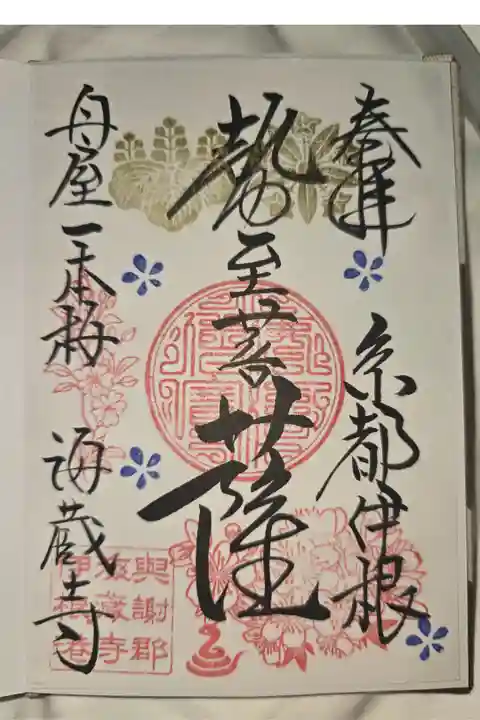 奉拝
京都伊根
勢至菩薩
舟屋一本
海蔵寺
與謝郡
海蔵寺
伊根港